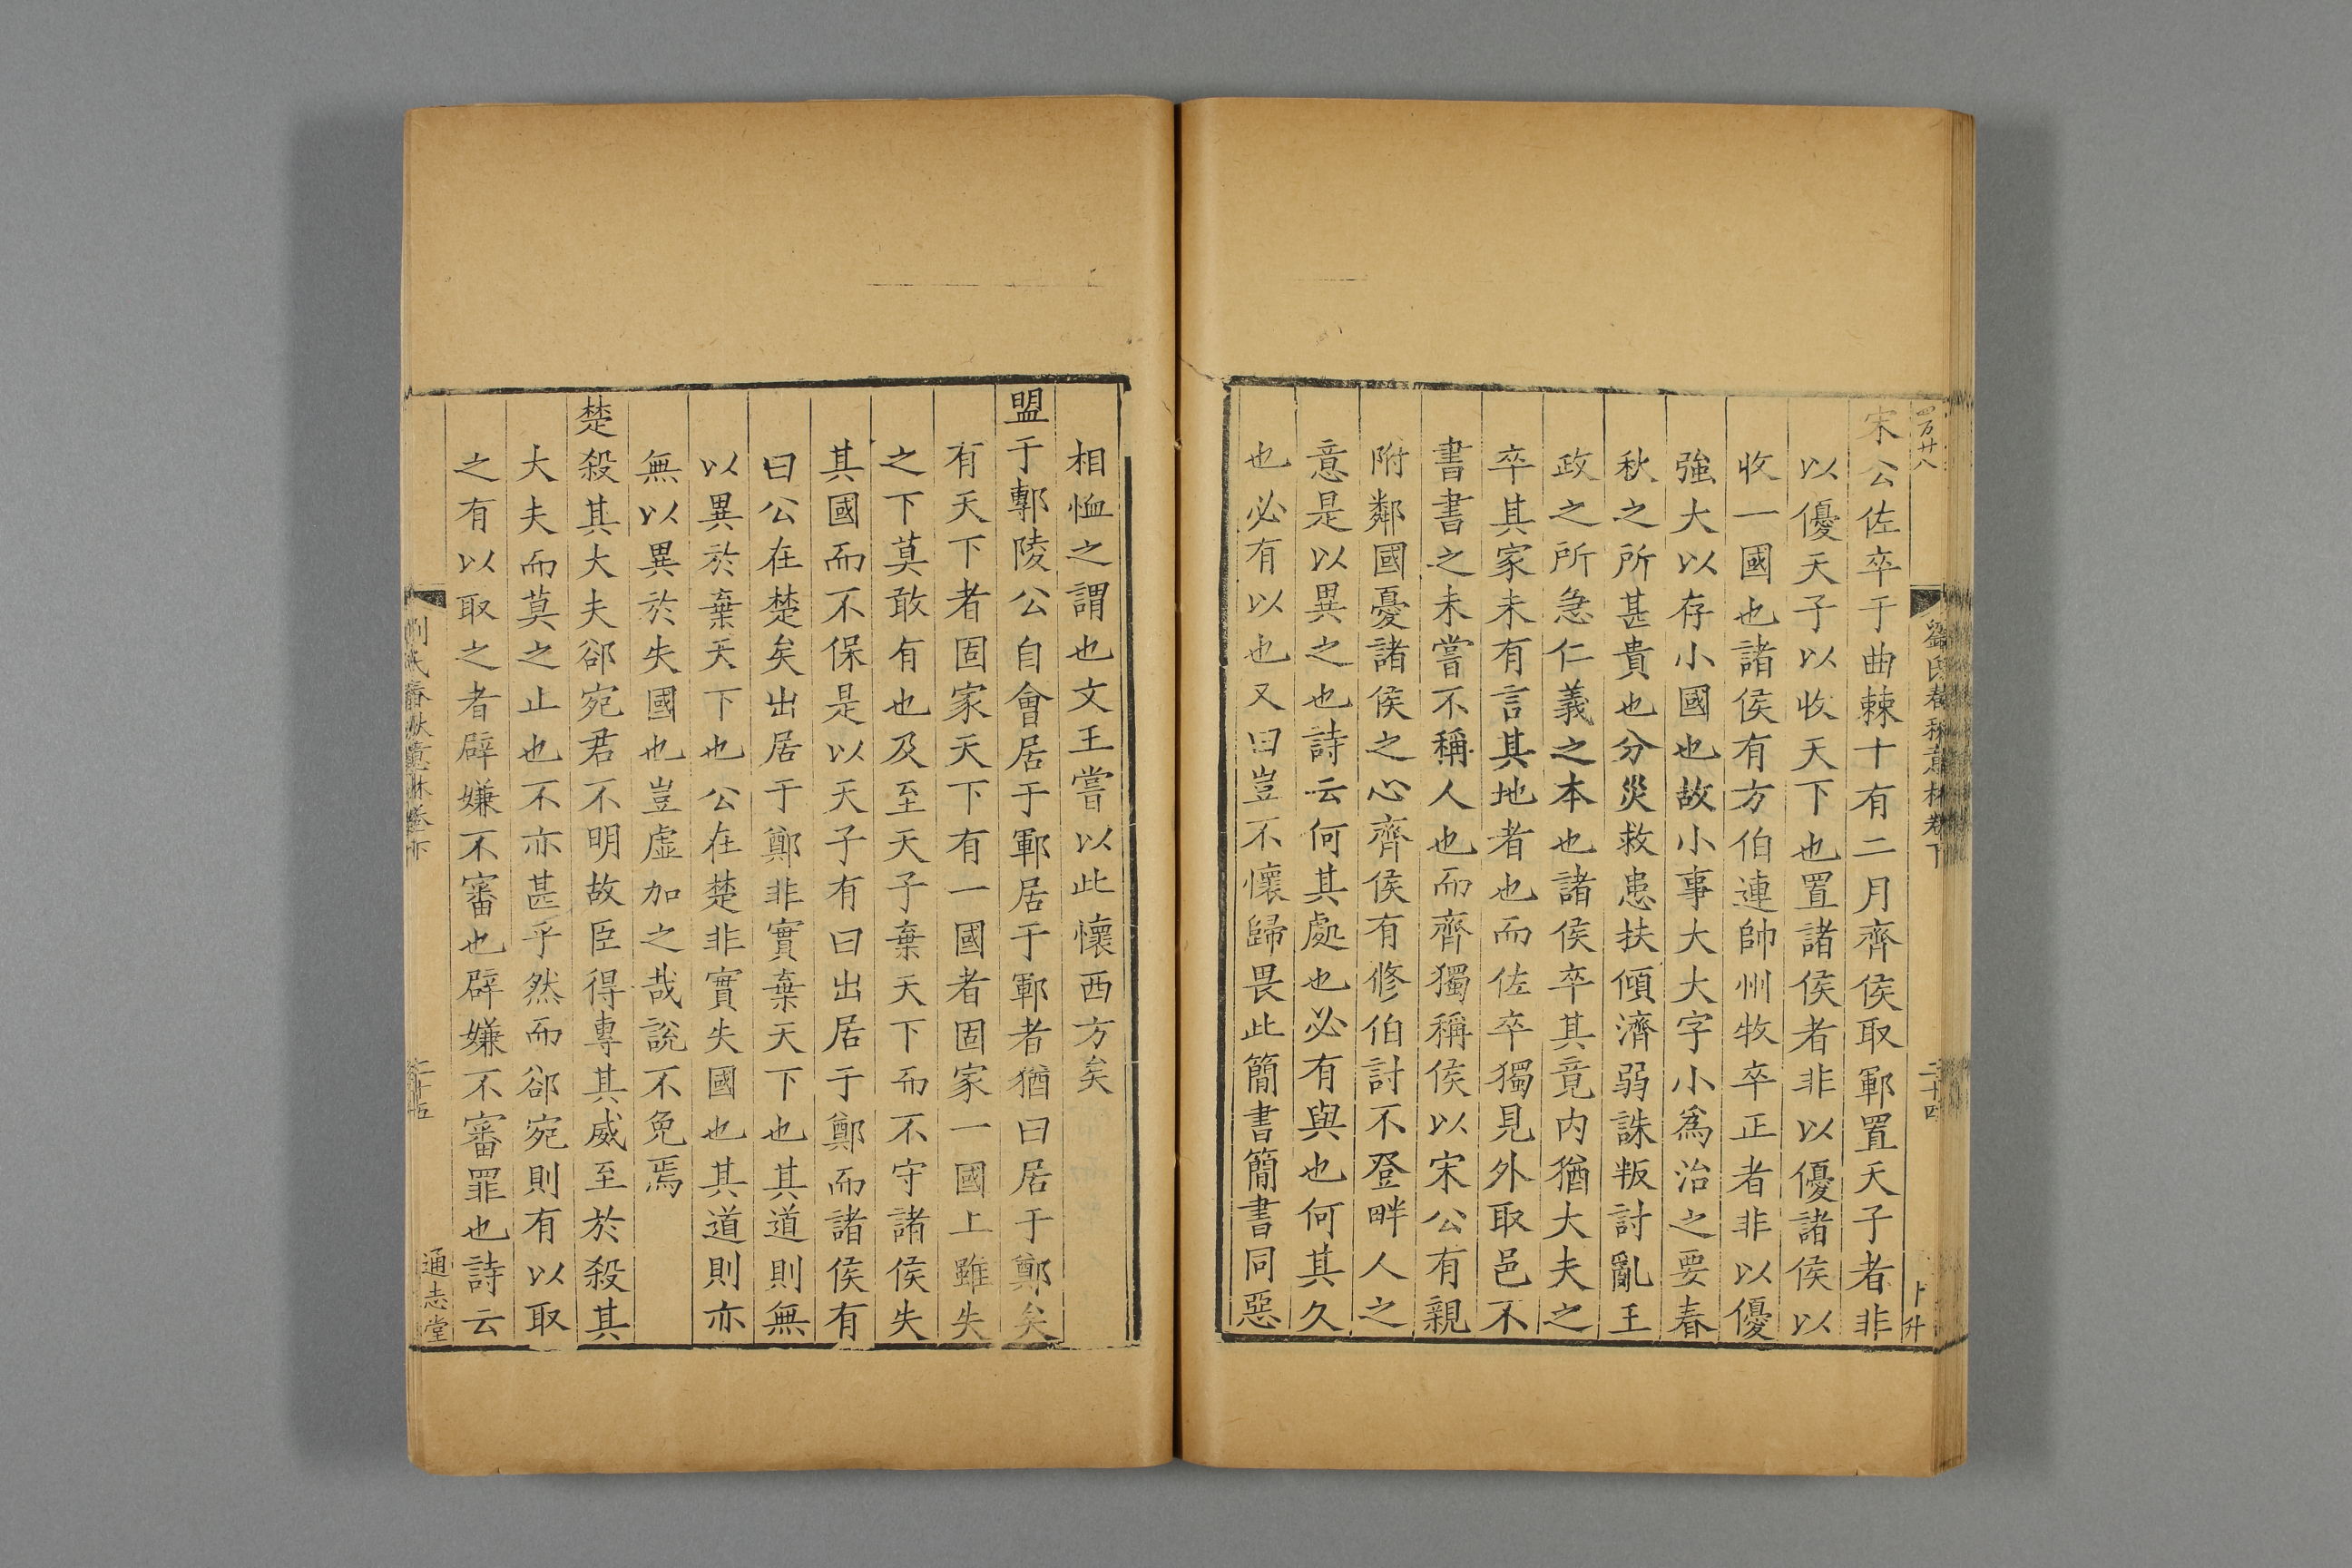 四百廿八
劉氏春秋意林卷下
二十四
卜升
宋公佐卒于曲棘十有二月齊侯取鄆置天子者非
以優天子以收天下也置諸侯者非以優諸侯以
收一國也諸侯有方伯連帥州牧卒正者非以優
強大以存小國也故小事大大字小爲治之要春
秋之所甚貴也分災救患扶傾濟弱誅叛討亂王
政之所急仁義之本也諸侯卒其竟内猶大夫之
卒其家未有言其地者也而佐卒獨見外取邑不
書書之未嘗不稱人也而齊獨稱侯以宋公有親
附鄰國憂諸侯之心齊侯有修伯討不登畔人之
意是以異之也詩云何其處也必有與也何其久
也必有以也又曰豈不懷歸畏此簡書簡書同惡
相恤之謂也文王嘗以此懷西方矣
盟于鄟陵公自會居于鄆居于鄆者猶曰居于鄭矣
有天下者固家天下有一國者固家一國上雖失
之下莫敢有也及至天子棄天下而不守諸侯失
其國而不保是以天子有曰出居于鄭而諸侯有
曰公在楚矣出居于鄭非實棄天下也其道則無
以異於棄天下也公在楚非實失國也其道則亦
無以異於失國也豈虛加之哉說不免焉
楚殺其大夫郤宛君不明故臣得專其威至於殺其
大夫而莫之止也不亦甚乎然而郤宛則有以取
之有以取之者辟嫌不審也辟嫌不審罪也詩云
劉氏春秋意林卷下
二十五
通志堂